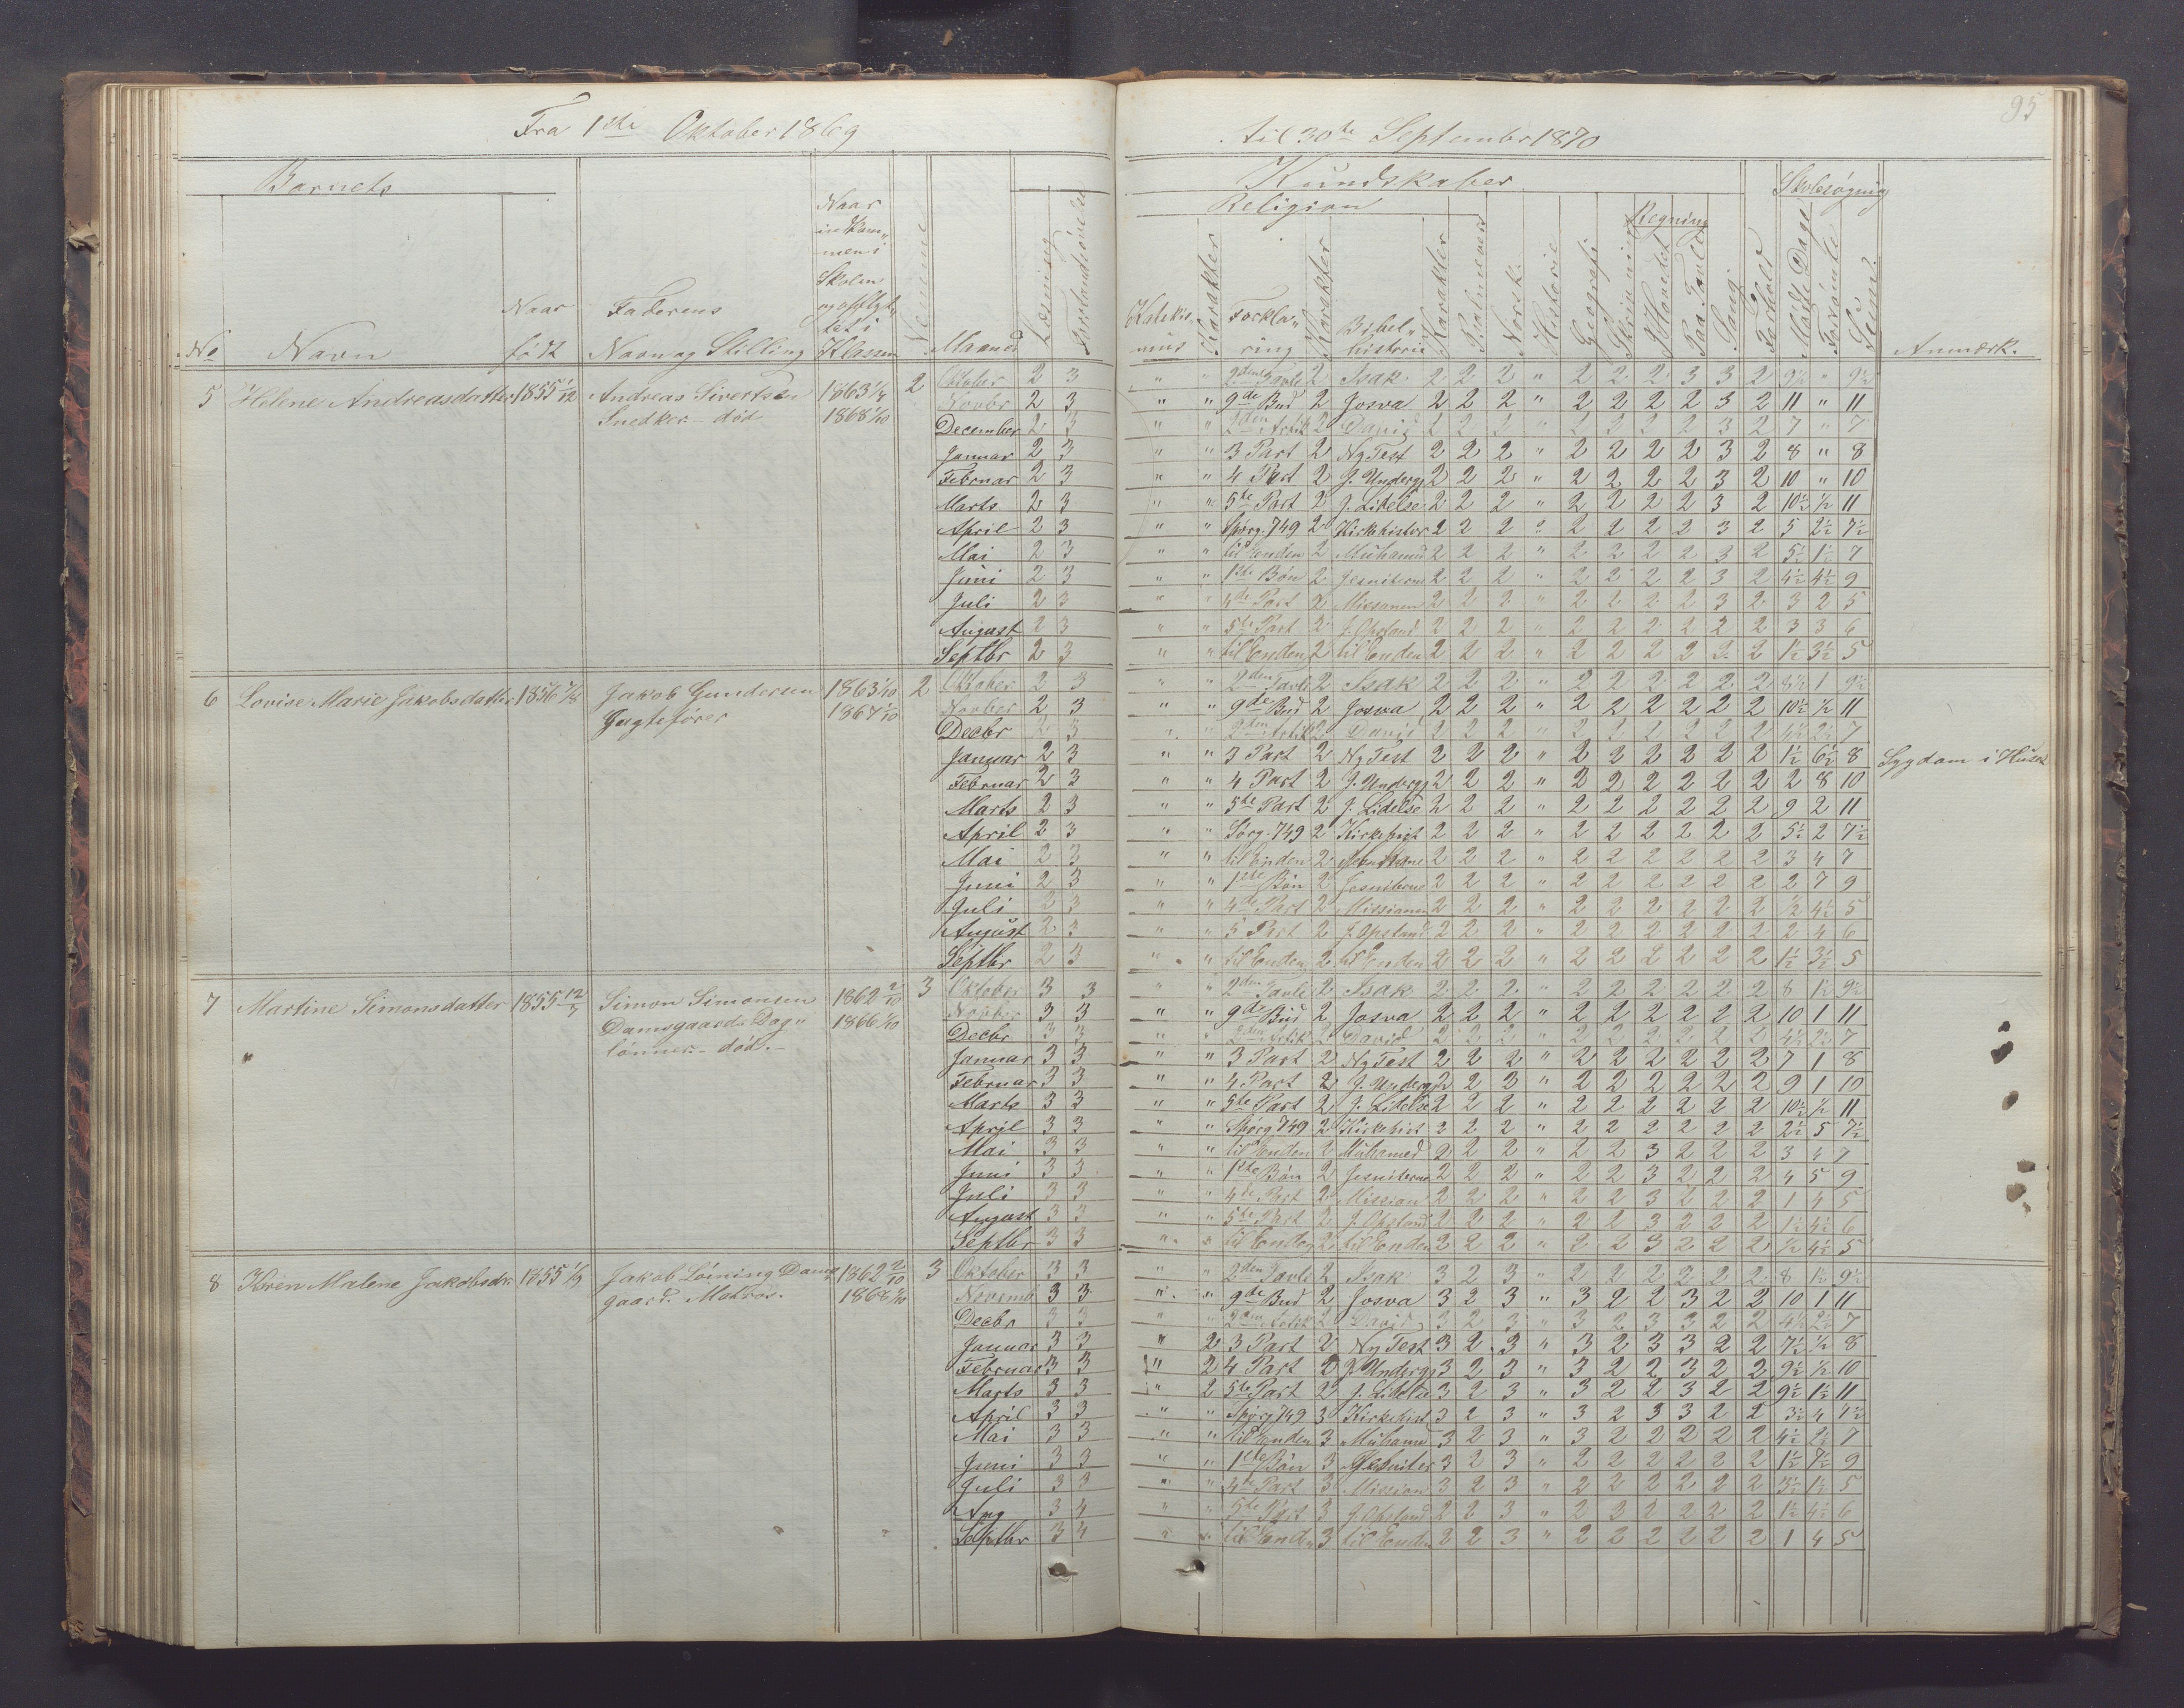 95
Fra 1ste Oktober 1869 til 30te September 1870
Barnets
Kundskaber
Skolesøgning
Religion
Regning
No
Navn
Naar født
Faderens Navn og Stilling
Naar indkommen i Skolen og opflyt„ tet i Klassen
Maaned
Læsning
Forstandsøvelse
Katekis„ mus
Karakter
Forkla„ ring
Karakter
Bibel„ historie
Karakter
Psalmevers
Norsk
Historie
Geografi
Skrivning
I Hovedet
Paa Tavle
Sang
Forhold
Mødte Dage
Forsømte
Sum
Anmærk.
5 Helene Andreasdatter 1855 1/12 Andreas Sivertsen 1863 1/4 2
Snedker - død 1868 1/10
Oktober 2 3 " " 2den Tavle 2 Isak 2 2 2 " 2 2 2 3 3 2 9½ " 9½
Novbr 2 3 " " 9de Bud 2 Josva 2 2 2 " 2 2 2 2 3 2 11 " 11
December 2 3 " " 2den Artik 2 David
Januar 2 3 " " 3 Part 2 Ny Test 2 2 2 " 2 2 2 2 3 2 8 " 8
Februar 2 3 " " 4 Part 2 J. Underg 2 2 2 " 2 2 2 2 3 2 10 " 10
Marts 2 3 " " 5te Part 2 J. Lidelse 2 2 2 " 2 2 2 2 3 2 10½ ½ 11
April 2 3 " " Spørg. 749 2 Kirkehistor 2 2 2 2 2 2 2 3 2 5 2½ 7½
Mai 2 3 " " til Enden 2 Muhamed 2 2 2 " 2 2 2 2 3 2 5½ 1½ 7
Juni 2 3 " " 1ste Bøn 2 Jesuiterne 2 2 2 " 2 2 2 2 3 2 4½ 4½ 9
Juli 2 3 " " 4de Part 2 Missionen 2 2 2 " 2 2 2 2 3 2 3 2 5
August 2 3 " " 5te Part 2 J. Opstand 2 2 2 " 2 2 2 2 2 2 3 3 6
Septbr 2 3 " " til Enden 2 til Enden 2 2 2 " 2 2 2 2 2 2 1½ 3½ 5
6 Lovise Marie Jakobsdatter 1856 Jakob Gundersen 1863 1/10 2
Jagtefører 1867 1/10
Oktober 2 3 " " 2den Tavle 2 Isak 2 2 2 " 2 2 2 2 2 2 8½ 1 9½
Novber 2 3 " " 9de Bud 2 Josva 2 2 2 " 2 2 2 2 2 2 10½ ½ 11
Decbr 2 3 " " 2den Artik 2 David 2 2 2 " 2 2 2 2 2 2 4½ 2½ 7
Januar 2 3 " " 3 Part 2 Ny Test 2 2 2 " 2 2 2 2 2 2 1½ 6½ 8 Sygdom i Huset
Februar 2 3 " " 4 Part 2 J. Underg 2 2 2 " 2 2 2 2 2 2 2 8 10
Marts 2 3 " " 5te Part 2 J. Lidelse 2 2 2 " 2 2 2 2 2 2 9 2 11
April 2 3 " " Sørg. 749 2 Kirkehist 2 2 2 " 2 2 2 2 2 2 5½ 2 7½
Mai 2 3 " " til Enden 2 2 2 2 " 2 2 2 2 2 2 3 4 7
Juni 2 3 " " 1ste Bøn 2 Jesuiterne 2 2 2 " 2 2 2 2 2 2 2 7 9
Juli 2 3 " " 4de Part 2 Missionen 2 2 2 " 2 2 2 2 2 2 ½ 4½ 5
August 2 3 " " 5 Part 2 J. Opstand 2 2 2 " 2 2 2 2 2 2 2 4 6
Septbr 2 3 " " til Enden 2 til Enden 2 2 2 " 2 2 2 2 2 2 1½ 3½ 5
7 Martine Simonsdatter 1855 12/7 Simon Simonsen 1862 2/10 3
Damsgaard. Dag„ 1866 1/10
lønner. - død. -
Oktober 3 3 " " 2den Tavle 2 Isak 2 2 2 " 2 2 2 2 2 2 8 1½ 9½
Novber 3 3 " " 9de Bud 2 Josva 2 2 2 " 2 2 2 2 2 2 10 1 11
Decbr 3 3 " " 2den Artik 2 David 2 2 2 " 2 2 2 2 2 2 4½ 2½ 7
Januar 3 3 " " 3 Part 2 Ny Test 2 2 2 " 2 2 2 2 2 2 7 1 8
Februar 3 3 " " 4 Part 2 J. Underg 2 2 2 " 2 2 2 2 2 2 9 1 10
Marts 3 3 " " 5te Part 2 J. Lidelse 2 2 2 " 2 2 2 2 2 2 10½ ½ 11
April 3 3 " " Spørg 749 2 Kirkehist 2 2 2 " 2 2 2 2 2 2 2½ 5 7½
Mai 3 3 " " til Enden 2 Muhamed 2 2 2 " 2 2 3 2 2 2 3 4 7
Juni 3 3 " " 1ste Bøn 2 Jesuiterne 2 2 2 " 2 2 3 2 2 2 4 5 9
Juli 3 3 " " 4de Part 2 Mission 2 2 2 " 2 2 3 2 2 2 1 4 5
August 3 3 " " 5te Part 2 J. Opstand 2 2 2 " 2 2 3 2 2 2 1½ 4½ 6
Septbr 3 3 " " til Enden 2 til Enden 2 2 2 " 2 2 3 2 2 2 ½ 4½ 5
8 Karen Malene Jakobsdr. 1855 1/9 Jakob Løining Dams 1862 2/10 3
gaard. Matros. 1868 1/10
Oktober 3 3 " " 2den Tavle 2 Isak 3 2 3 " 2 2 2 2 2 2 8 1½ 9½
Novemb 3 3 " " 9de Bud 2 Josva 3 2 3 " 3 2 2 3 2 2 10 1 11
Decbr 3 3 " " 2den Artik 2 David 3 2 3 " 3 2 3 3 2 2 4½ 2½ 7
Januar 3 3 " 2 3 Part 2 Ny Test 3 2 3 " 3 2 3 3 2 2 7½ ½ 8
Februar 3 3 " 2 4 Part 2 J. Underg 3 2 3 " 3 2 2 3 2 2 9½ ½ 10
Marts 3 3 " 2 5te Part 2 J. Lidelse 3 2 3 " 3 2 2 3 2 2 9½ 1½ 11
April 3 3 " " Spørg 749 3 Kirkehist 3 2 3 " 3 2 3 3 2 2 3½ 4
Mai 3 3 " " til Enden 3 Muhamed 3 2 3 " 3 2 2 2 2 2 4½ 2½ 7
Juni 3 3 " " 1ste Bøn 3 Jesuiter 3 2 3 " 2 2 2 2 2 2 1½ 7½ 9
Juli 3 3 " " 4de Part 3 Mission 3 2 3 " 2 2 2 2 2 2 3½ 1½ 5
Aug 3 4 " " 5te Part 3 J. Opstand 2 2 3 " 2 2 2 2 2 2 1½ 4½ 6
Septbr 3 4 " " til Enden 3 til Enden 2 2 3 " 2 2 2 2 2 2 1 4 5